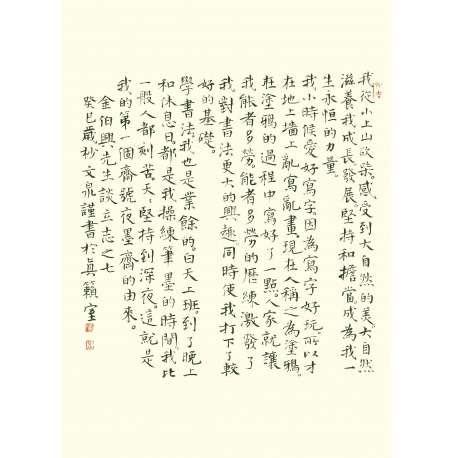 我從小上山砍柴。感受到大自然的美。大自然
滋養我成長。發展。堅持和擔當。成為我一
生永恒的力量。
我小時候愛好寫字。因為寫字好玩。所以才
在地上墻上亂寫亂畫。現在人稱之為塗鴉。
在塗鴉的過程中寫好了一點。家就讓
我能者多勞。能者多勞的歷練激發了
我對書法更大的興趣同時使我打下了較
好的基礎。
學書法我也是業餘的。白天上班。到了晚上
和休息日都是我操練筆墨的時間我比
一般人都刻苦天天堅持到深夜。這就是
我的第一個齋號夜墨齋的由來。
金伯興先生談立志之七
癸巳歲杪文泉謹書於真籟室